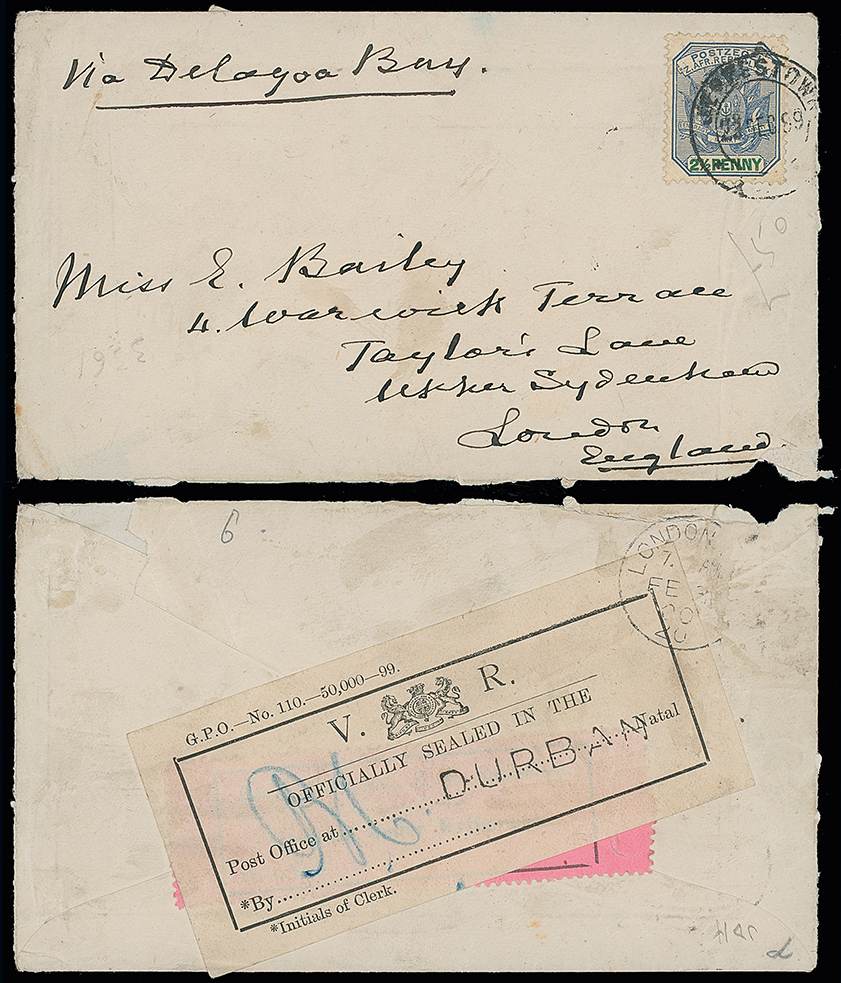 Via Delagoa Bay.
POSTZEGEL
Z. AFR. REPUBLIEK
2½ PENNY
Miss E. Bailey
4. Warwick Terrace
Taylor's Lane
Upper Sydenham
London
England.
6.
LONDON
7. AM
FE
00
G.P.O.—No. 110.—50,000—99.
V. R.
OFFICIALLY SEALED IN THE
Post Office at DURBAN Natal
*By
*Initials of Clerk.